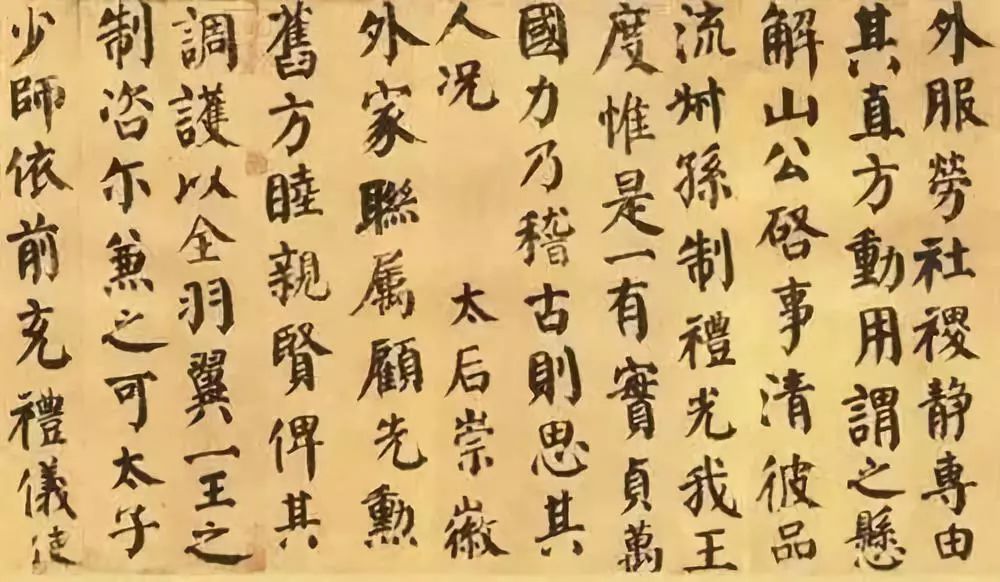 外服勞社稷静專由
其直方動用謂之懸
解山公啓事清彼品
流叔孫制禮光我王
度惟是一有實貞萬
國力乃稽古則思其
人况 太后崇徽
外家聯属顧先勲
舊方睦親賢俾其
調護以全羽翼一王之
制咨尓兼之可太子
少師依前充禮儀使